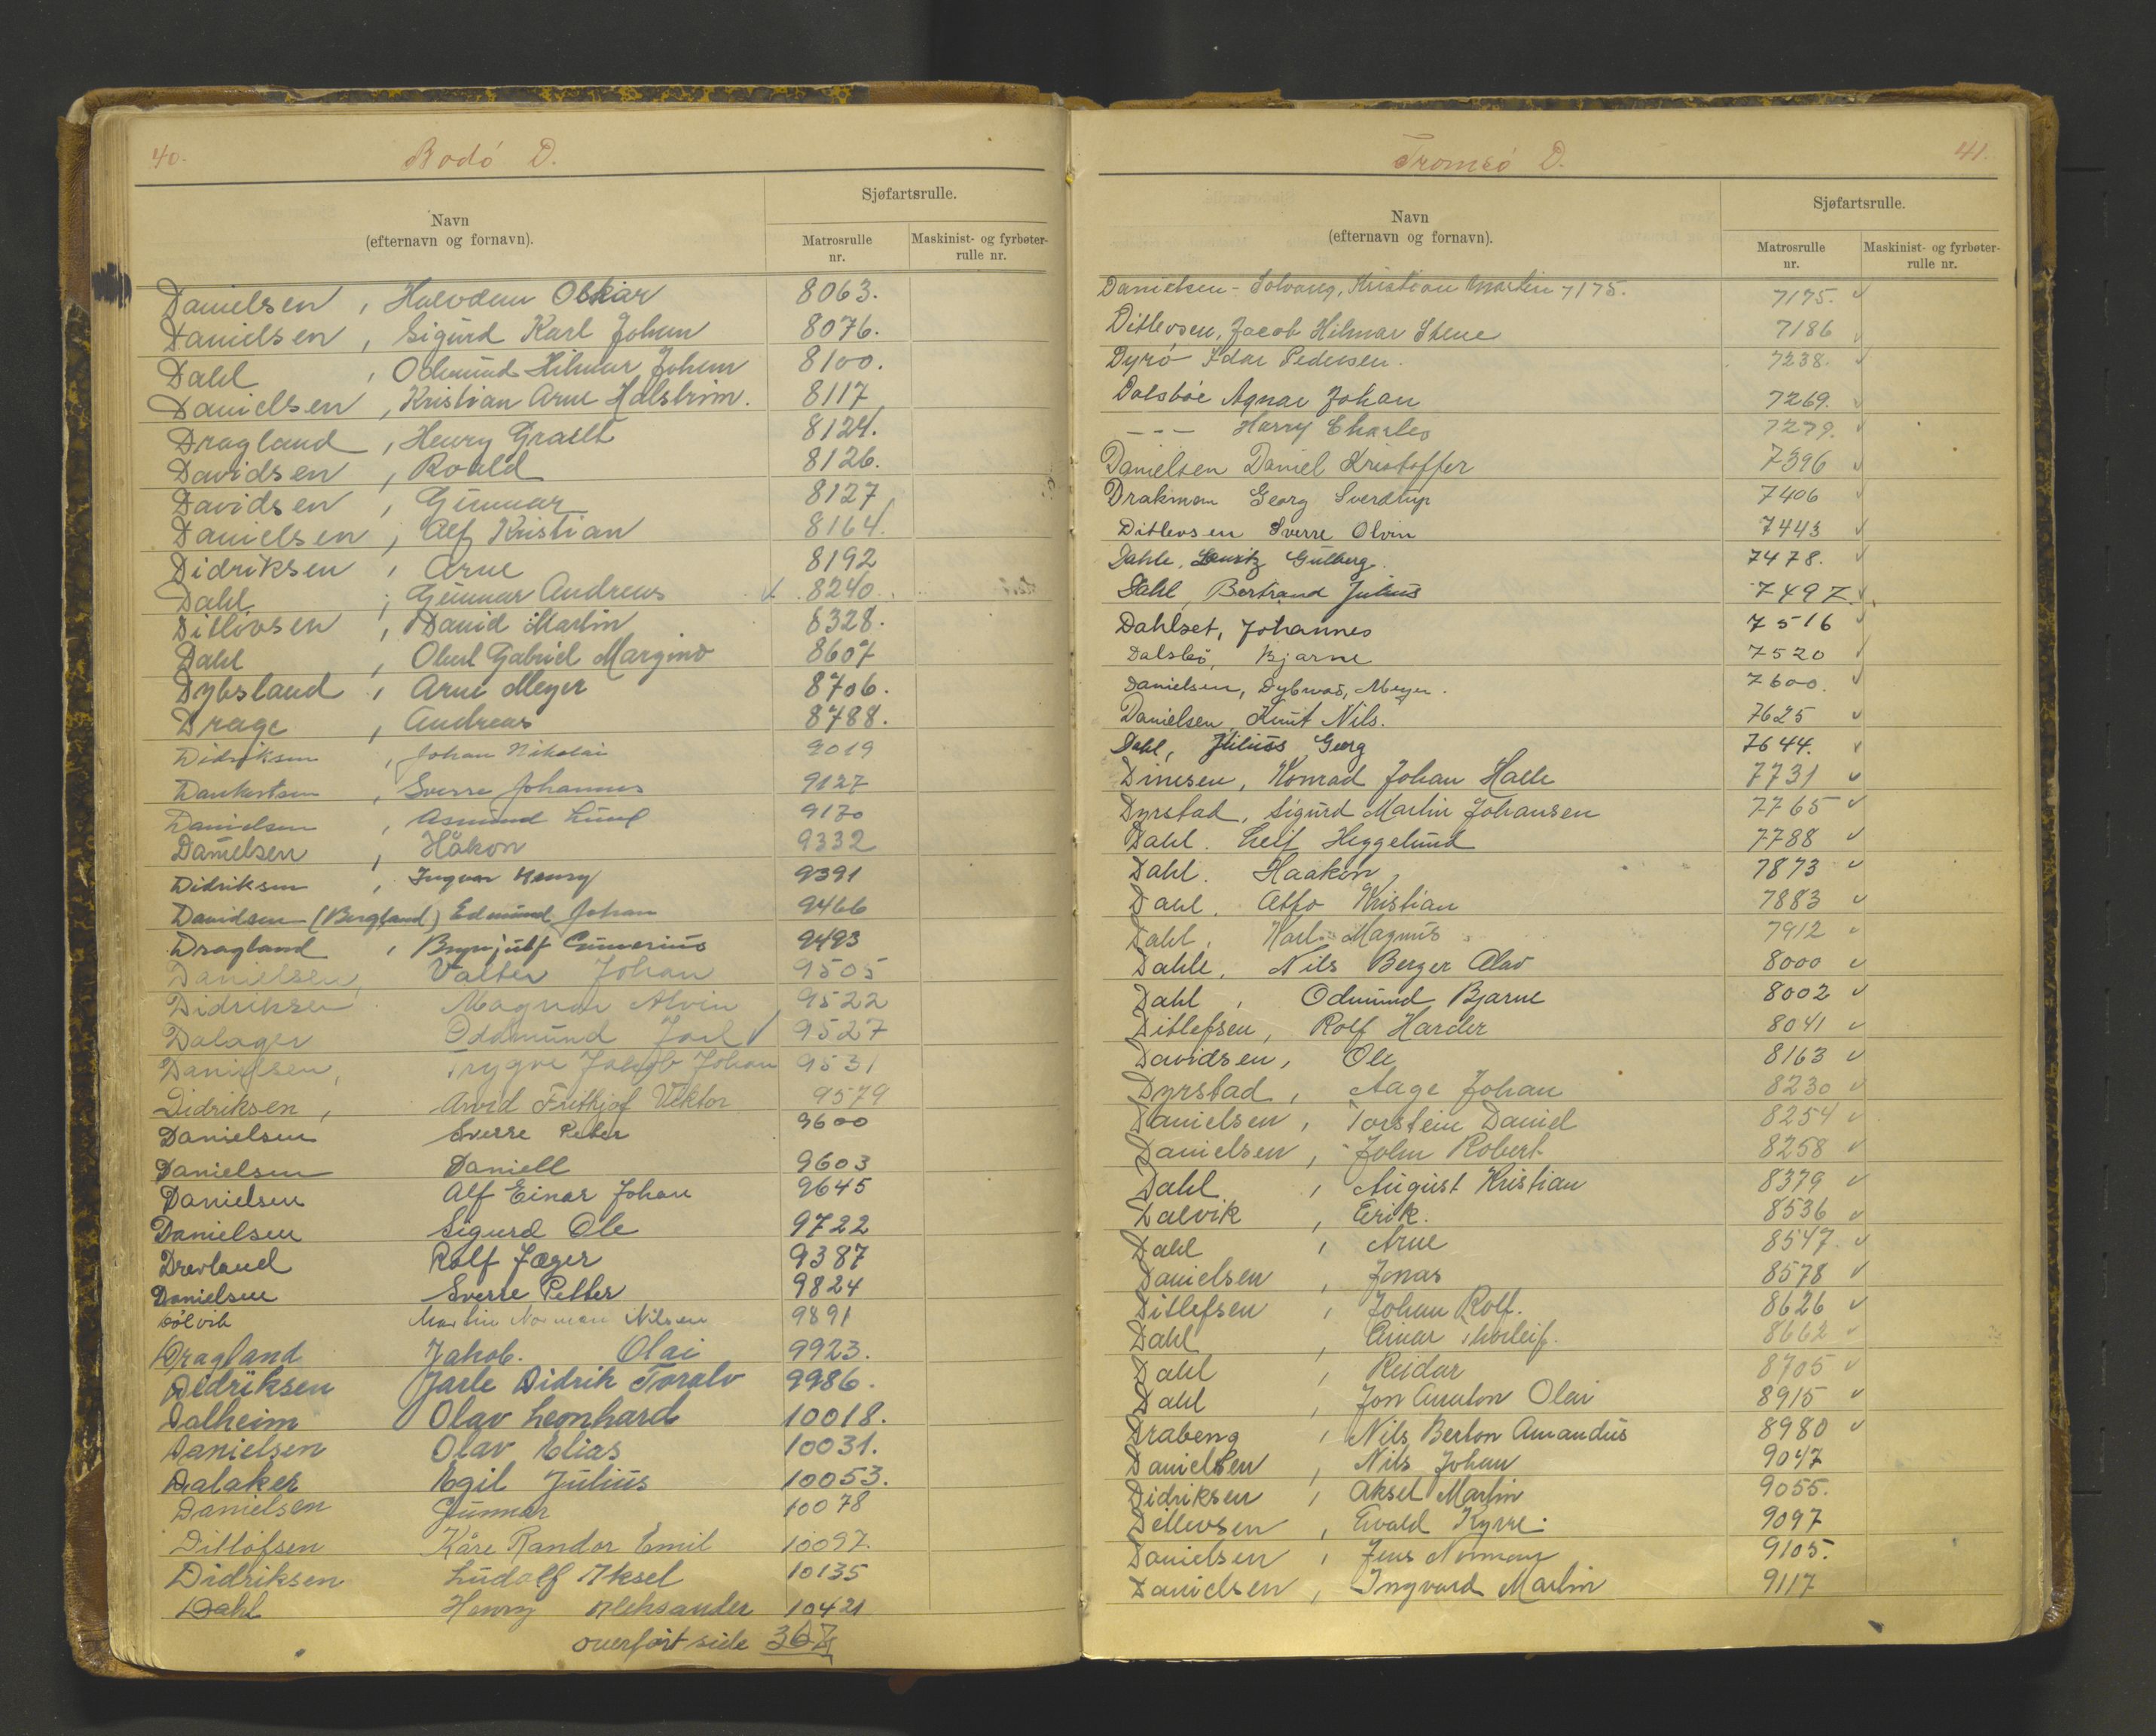 40.
Bodó D.
Navn
(efternavn og fornavn).
Sjøfartsrulle.
Matrosrulle nr.
Maskinist- og fyrbøter-rulle nr.
Danielsen, Halvdan Oskar 8063.
Danielsen, Sigurd Karl Johan 8076.
Dahl, Odmund Hilmar Johan 8100.
Danielsen, Kristian Arne Halstrim. 8117
Dragland, Henry Graelt 8124.
Davidsen, Roald 8126.
Davidsen, Gunnar 8127
Danielsen, Alf Kristian 8164.
Didriksen, Arne 8192
Dahl, Gunnar Andreas ✓ 8240.
Ditlovsen, David Martin 8328.
Dahl, Olul Gabriel Margino 8607
Dybsland, Arne Meyer 8706.
Drage, Andreas 8788.
Didriksen, Johan Nikolai 9019
Dankertsen, Sverre Johannes 9127
Danielsen, Asmund Lund 9170
Danielsen, Håkon 9332
Didriksen, Ingvar Henry 9391
Davidsen (Bergland) Edmund Johan 9466
Dragland, Brynjulf Gunnerius 9493
Danielsen, Valter Johan 9505
Didriksen Magnar Alvin 9522
Dalager Oddmund Jarl ✓ 9527
Danielsen, Trygve Jakob Johan 9531
Didriksen, Arvid Frithjof Viktor 9579
Danielsen Sverre Peter 9600
Danielsen Daniell 9603
Danielsen Alf Einar Johan 9645
Danielsen Sigurd Ole 9722
Drevland Rolf Jæger 9387
Danielsen Sverre Petter 9824
Dølvik Martin Norman Nilsen 9891
Dragland Jakob. Olai 9923.
Didriksen Jarle Didrik Toralv 9986.
Dalheim Olav Leonhard 10018.
Danielsen Olav Elias 10031.
Dalaker Egil Julius 10053.
Danielsen Gunnar 10078
Ditlofsen Kåre Randor Emil 10097.
Didriksen Ludolf Aksel 10135
Dahl Henry Aleksander 10421
overført side 367
Tromsö D.
41.
Navn
(efternavn og fornavn).
Sjøfartsrulle.
Matrosrulle nr.
Maskinist- og fyrbøter-rulle nr.
Danielsen-Solvang, Kristian Martin 7175. 7175. ✓
Ditlevsen, Jacob Hilmar Stene 7186 ✓
Dyrö Idar Pedersen. 7238. ✓
Dalsböe Agnar Johan 7269. ✓
--- Harry Charles 7279. ✓
Danielsen Daniel Kristoffer 7396 ✓
Drakman Georg Sverdrup 7406 ✓
Ditlevsen Sverre Olvin 7443 ✓
Dahle, Lauritz Gulberg. 7478. ✓
Dahl, Bertrand Julius 7497. ✓
Dahlset, Johannes 7516 ✓
Dalsbö, Bjarne 7520 ✓
Danielsen, Dybwad, Meyer. 7600. ✓
Danielsen, Knut Nils. 7625 ✓
Dahl, Julius Georg 7644. ✓
Dinesen, Konrad Johan Halle 7731 ✓
Dyrstad, Sigurd Martin Johansen 7765 ✓
Dahl. Leif Heggelund 7788 ✓
Dahl. Haakon 7873 ✓
Dahl. Atto Kristian 7883 ✓
Dahl, Karl Magnus 7912 ✓
Dahle, Nils Berger Olav 8000 ✓
Dahl, Odmund Bjarne 8002 ✓
Ditlefsen, Rolf Harder 8041 ✓
Davidsen, Ole 8163 ✓
Dyrstad, Aage Johan 8230 ✓
Danielsen, Torstein Daniel 8254 ✓
Danielsen, John Robert 8258 ✓
Dahl, August Kristian 8379 ✓
Dalvik, Erik. 8536 ✓
Dahl, Arne 8547. ✓
Danielsen, Jonas 8578 ✓
Ditlefsen, Johan Rolf. 8626 ✓
Dahl, Einar Thorleif. 8662 ✓
Dahl, Reidar 8705 ✓
Dahl, Jon Olai 8915 ✓
Drabeng, Nils Berton Amandus 8980 ✓
Danielsen, Nils Johan 9047
Didriksen, Aksel Martin 9055.
Detlevsen, Evald Kyrre. 9097
Danielsen, Jens Normann 9105.
Danielsen, Ingvard Martin 9117